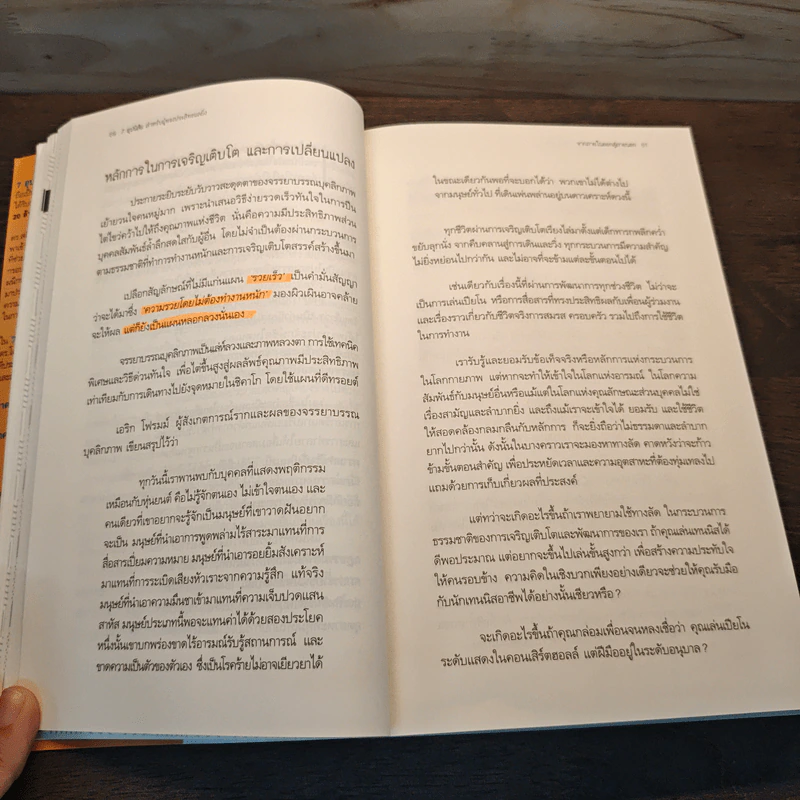 7 อุปนิสัย สำหรับผู้ทรงประสิทธิผลยิ่ง
หลักการในการเจริญเติบโต และการเปลี่ยนแปลง
ประกายระยิบระยับวับวาวสะดุดตาของจรรยาบรรณบุคลิกภาพ
เย้ายวนใจคนหมู่มาก เพราะนำเสนอวิธีง่ายรวดเร็วทันใจในการปีน
ไต่ไขว่คว้าไปให้ถึงคุณภาพแห่งชีวิต นั่นคือความมีประสิทธิภาพส่วน
บุคคลสัมพันธ์ล้ำลึกสดใสกับผู้อื่น โดยไม่จำเป็นต้องผ่านกระบวนการ
ตามธรรมชาติที่ทำการทำงานหนักและการเจริญเติบโตสรรค์สร้างขึ้นมา
เปลือกสัญลักษณ์ที่ไม่มีแก่นแผน "รวยเร็ว" เป็นคำมั่นสัญญา
ว่าจะได้มาซึ่ง "ความรวยโดยไม่ต้องทำงานหนัก" มองผิวเผินอาจคล้าย
จะให้ผล แต่ก็ยังเป็นแผนหลอกลวงนั่นเอง
จรรยาบรรณบุคลิกภาพเป็นเล่ห์ลวงและภาพลวงตา การใช้เทคนิค
พิเศษและวิธีด่วนทันใจ เพื่อไต่ขึ้นสูงสู่ผลลัพธ์คุณภาพมีประสิทธิภาพ
เท่าเทียมกับการเดินทางไปยังจุดหมายในชิคาโก โดยใช้แผนที่ดีทรอยต์
เอริก โฟรมม์ ผู้สังเกตการณ์รากและผลของจรรยาบรรณ
บุคลิกภาพ เขียนสรุปไว้ว่า
ทุกวันนี้เราพานพบกับบุคคลที่แสดงพฤติกรรม
เหมือนกับหุ่นยนต์ คือไม่รู้จักตนเอง ไม่เข้าใจตนเอง และ
คนเดียวที่เขาอยากจะรู้จักเป็นมนุษย์ที่เขาวาดฝันอยาก
จะเป็น มนุษย์ที่นำเอาการพูดพล่ามไร้สาระมาแทนที่การ
สื่อสารเปี่ยมความหมาย มนุษย์ที่นำเอารอยยิ้มสังเคราะห์
มาแทนที่การระเบิดเสียงหัวเราะจากความรู้สึก แท้จริง
มนุษย์ที่นำเอาความมึนชาเข้ามาแทนที่ความเจ็บปวดแสน
สาหัส มนุษย์ประเภทนี้พอจะแทนค่าได้ด้วยสองประโยค
หนึ่งนั้นเขาบกพร่องขาดไร้อารมณ์รับรู้สถานการณ์ และ
ขาดความเป็นตัวของตัวเอง ซึ่งเป็นโรคร้ายไม่อาจเยียวยาได้
จากภายในออกสู่ภายนอก
ในขณะเดียวกันพอที่จะบอกได้ว่า พวกเขาไม่ได้ต่างไป
จากมนุษย์ทั่วไป ที่เดินเพ่นพล่านอยู่บนดาวเคราะห์ดวงนี้
ทุกชีวิตผ่านการเจริญเติบโตเรียงไล่มาตั้งแต่เด็กทารกพลิกคว่ำ
ขยับลุกนั่ง จากคืบคลานสู่การเดินและวิ่ง ทุกกระบวนการมีความสำคัญ
ไม่ยิ่งหย่อนไปกว่ากัน และไม่อาจที่จะข้ามแต่ละขั้นตอนไปได้
เช่นเดียวกับเรื่องนี้ที่ผ่านการพัฒนาการทุกช่วงชีวิต ไม่ว่าจะ
เป็นการเล่นเปียโน หรือการสื่อสารที่ทรงประสิทธิผลกับเพื่อนผู้ร่วมงาน
และเรื่องราวเกี่ยวกับชีวิตจริงการสมรส ครอบครัว รวมไปถึงการใช้ชีวิต
ในการทำงาน
เรารับรู้และยอมรับข้อเท็จจริงหรือหลักการแห่งกระบวนการ
ในโลกกายภาพ แต่หากจะทำให้เข้าใจในโลกแห่งอารมณ์ ในโลกความ
สัมพันธ์กับมนุษย์อื่นหรือแม้แต่ในโลกแห่งคุณลักษณะส่วนบุคคลไม่ใช่
เรื่องสามัญและลำบากยิ่ง และถึงแม้เราจะเข้าใจได้ ยอมรับ และใช้ชีวิต
ให้สอดคล้องกลมกลืนกับหลักการ ก็จะยิ่งถือว่าไม่ธรรมดาและลำบาก
ยากไปกว่านั้น ดังนั้นในบางคราวเราจะมองหาทางลัด คาดหวังว่าจะก้าว
ข้ามขั้นตอนสำคัญ เพื่อประหยัดเวลาและความอุตสาหะที่ต้องทุ่มเทลงไป
แถมด้วยการเก็บเกี่ยวผลที่ประสงค์
แต่ทว่าจะเกิดอะไรขึ้นถ้าเราพยายามใช้ทางลัด ในกระบวนการ
ธรรมชาติของการเจริญเติบโตและพัฒนาการของเรา ถ้าคุณเล่นเทนนิสได้
ดีพอประมาณ แต่อยากจะขึ้นไปเล่นชั้นสูงกว่า เพื่อสร้างความประทับใจ
ให้คนรอบข้าง ความคิดในเชิงบวกเพียงอย่างเดียวจะช่วยให้คุณรับมือ
กับนักเทนนิสอาชีพได้อย่างนั้นเชียวหรือ?
จะเกิดอะไรขึ้นถ้าคุณกล่อมเพื่อนจนหลงเชื่อว่า คุณเล่นเปียโน
ระดับแสดงในคอนเสิร์ตฮอลล์ แต่ฝีมืออยู่ในระดับอนุบาล?